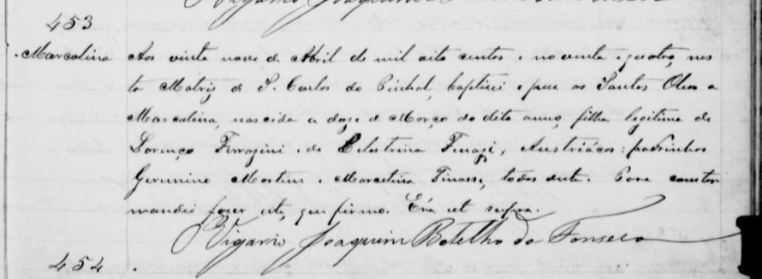 453
Marcolina Aos vinte nove de Abril de mil oito centos e noventa e quatro, nes
ta Matriz de S. Carlos do Pinhal, baptizei e puz os Santos Oleos a
Marcolina, nascida a doze de Março do dito anno, filha legitima de
Lourenço e de Celestrina Tinazi, Austriácos: padrinhos
Martins e Marcolina Tinassi, todos desta. Para constar
mandei fazer este, que firmo. Era ut supra.
Vigario Joaquim Botelho da Fonseca
454